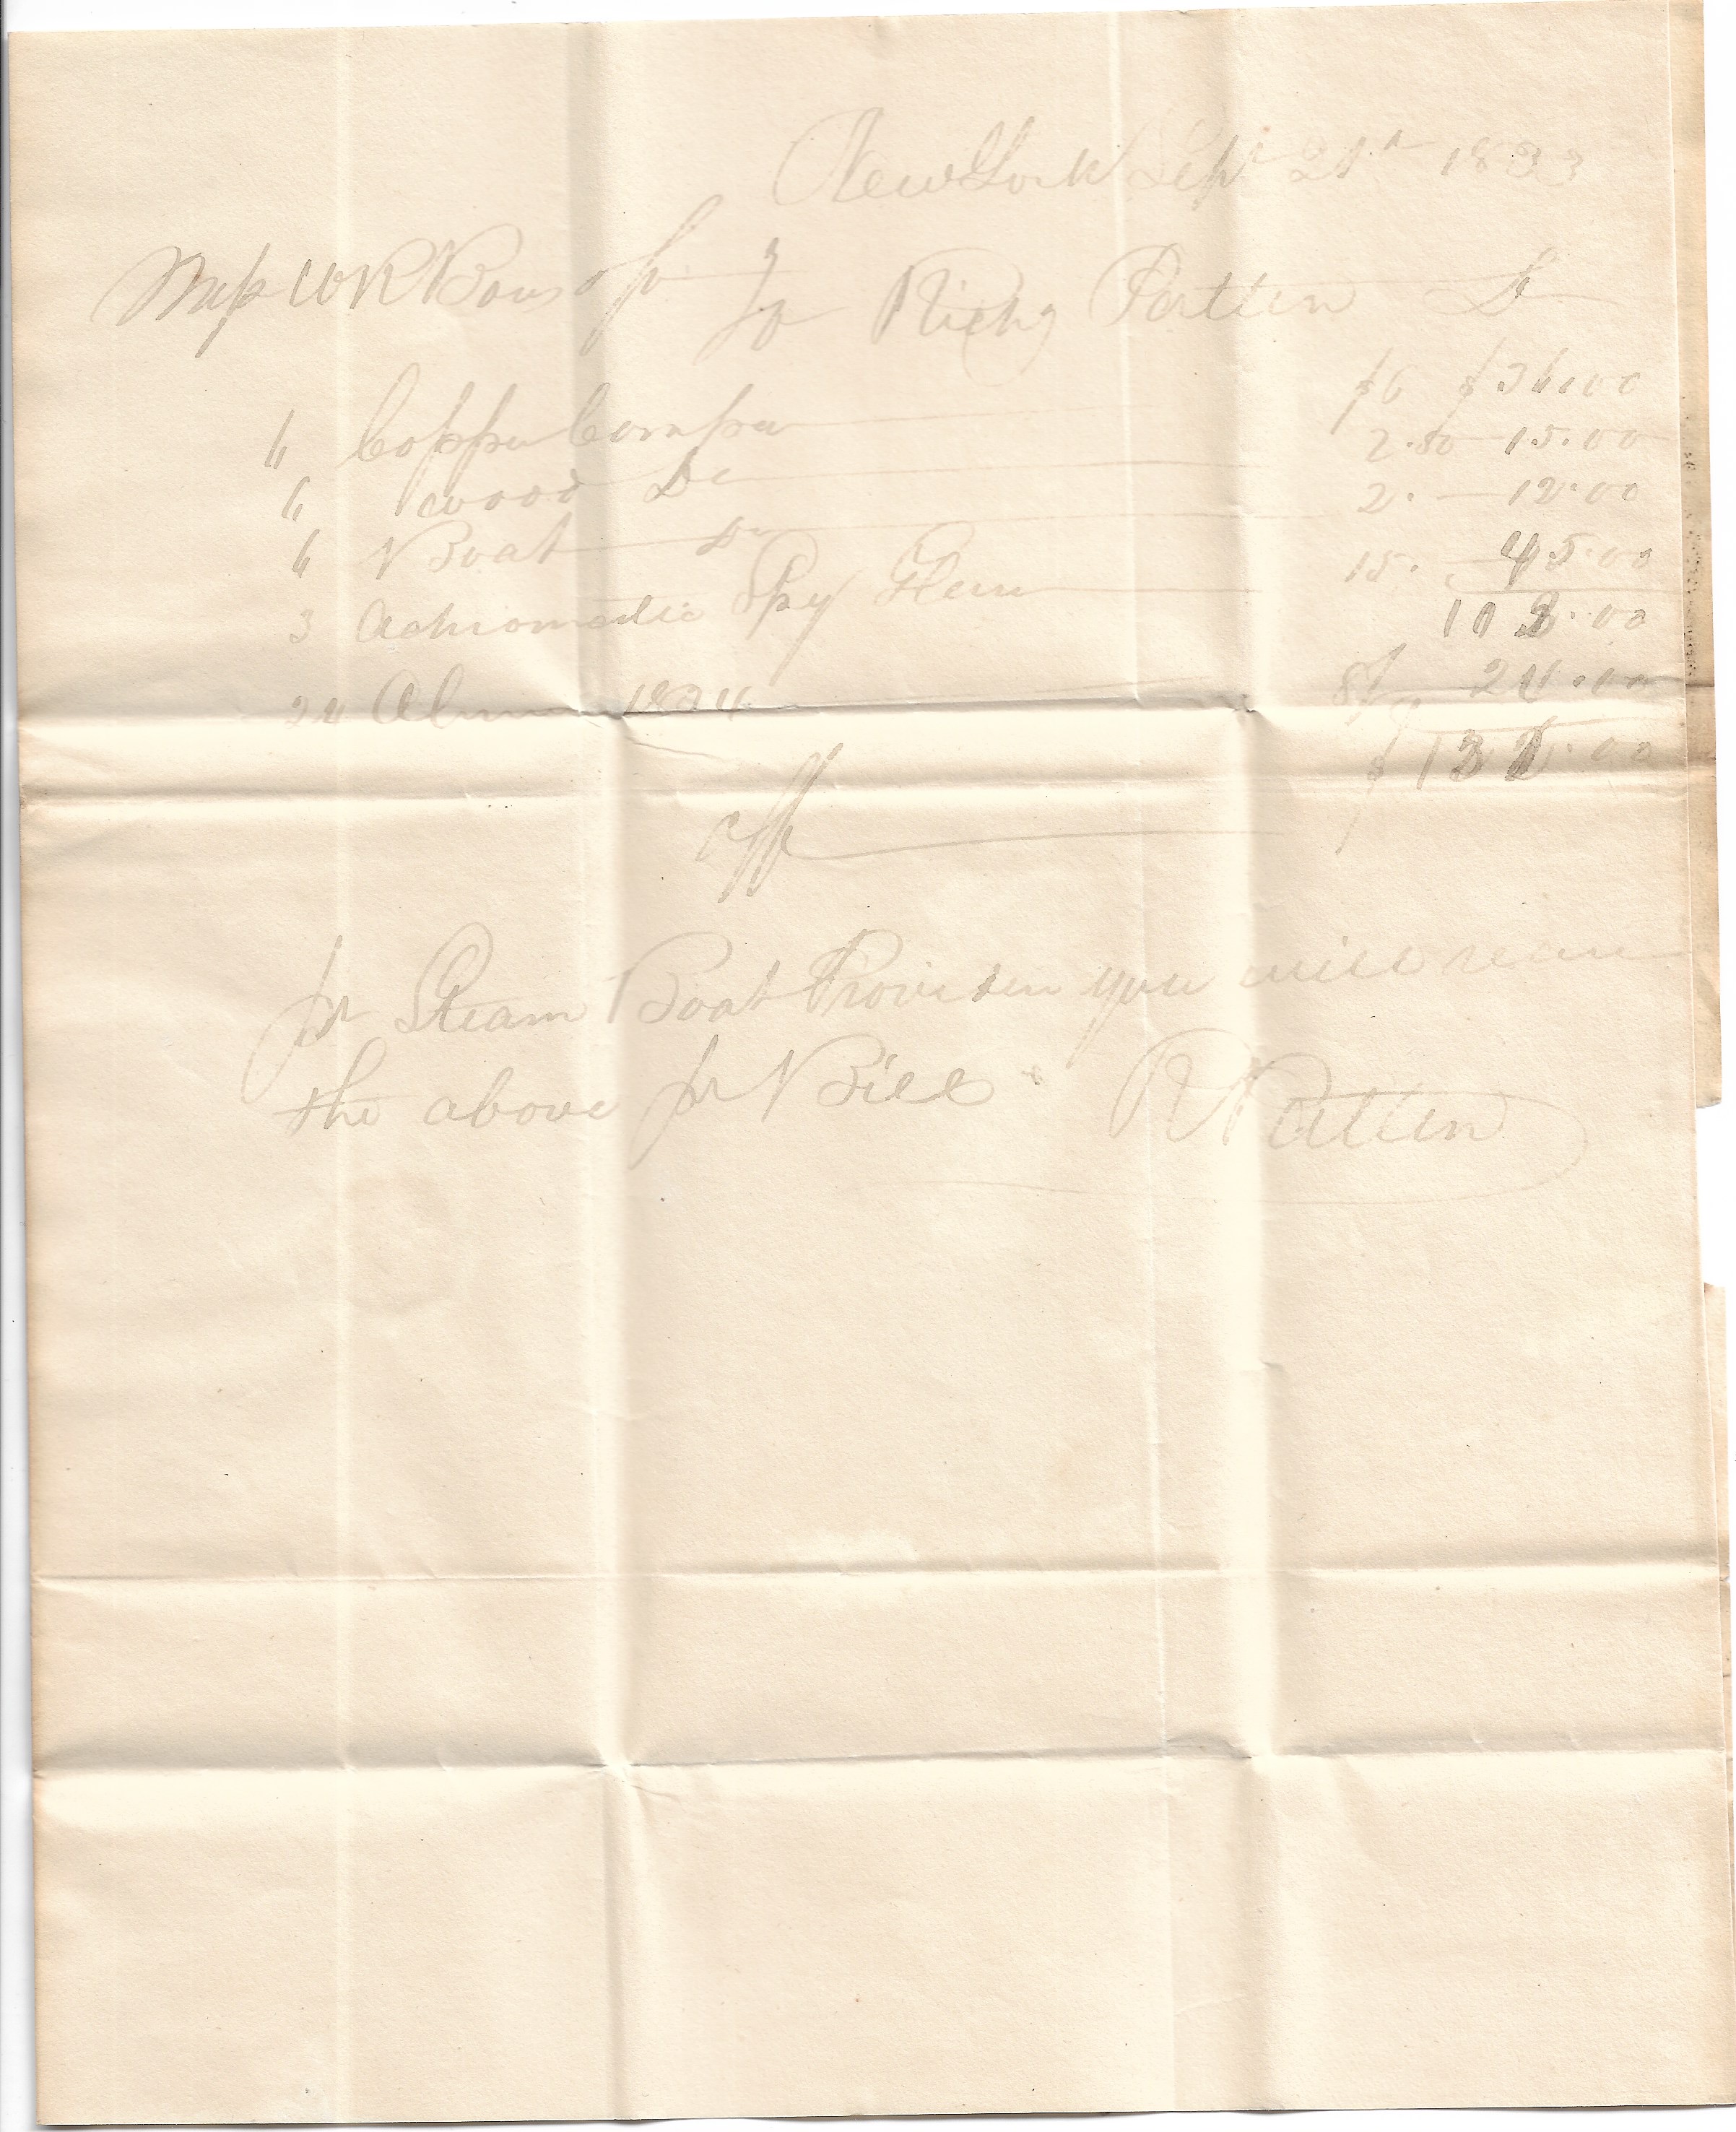 New York Sept 21st 1833
Mess W R To Richd Patten Dr
6 Copper Compass $6 $36.00
6 wood Do 2.50 15.00
6 Boat Do 2. 12.00
3 Achromatic Spy Glass 15. 45.00
108.00
24 1834 24.00
$132.00
pr Steam Boat Providence you will receive
the above pr Bill R Patten